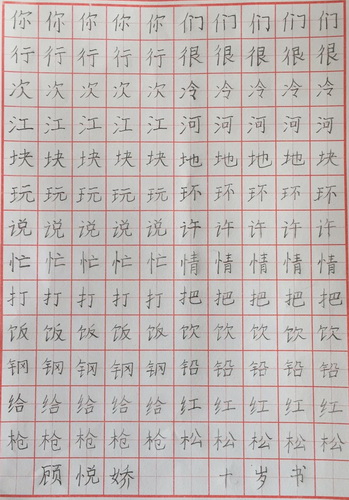 你你你你你们们们们们
行行行行行很很很很很
次次次次次冷冷冷冷冷
江江江江江河河河河河
块块块块块地地地地块
玩玩玩玩玩环环环环环
说说说说说许许许许许
忙忙忙忙忙情情情情情
打打打打打把把把把把
饭饭饭饭饭饮饮饮饮饮
钢钢钢钢钢铅铅铅铅铅
给给给给给红红红红红
枪枪枪枪枪松松松松松
顾悦娇 十岁书